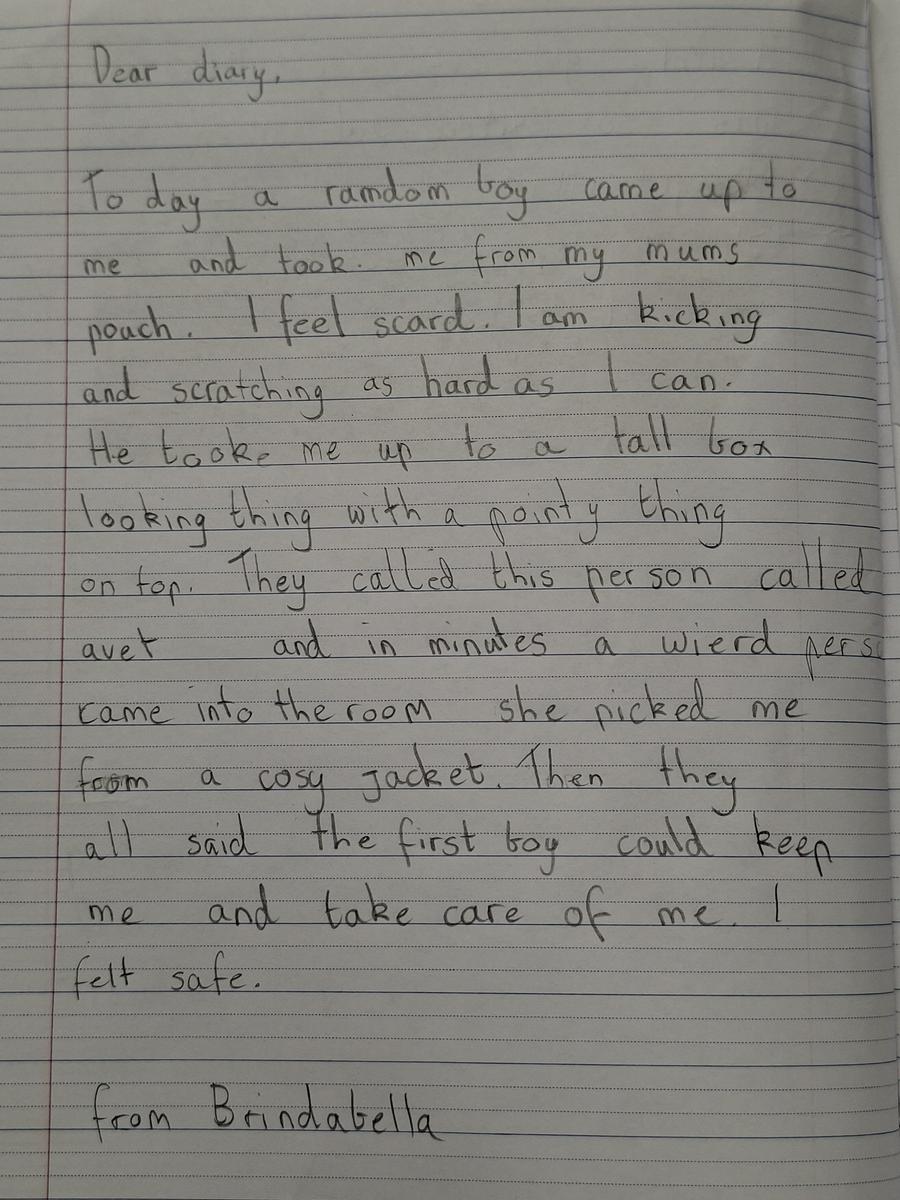 Dear diary,
To day a ramdom boy came up to
me and took. me from my mums
pouch. I feel scard. I am kicking
and scratching as hard as I can.
He tooke me up to a tall box
looking thing with a pointy thing
on top. They called this person called
avet and in minutes a wierd perso
came into the room she picked me
from a cosy jacket. Then they
all said the first boy could keep
me and take care of me. I
felt safe.
from Brindabella